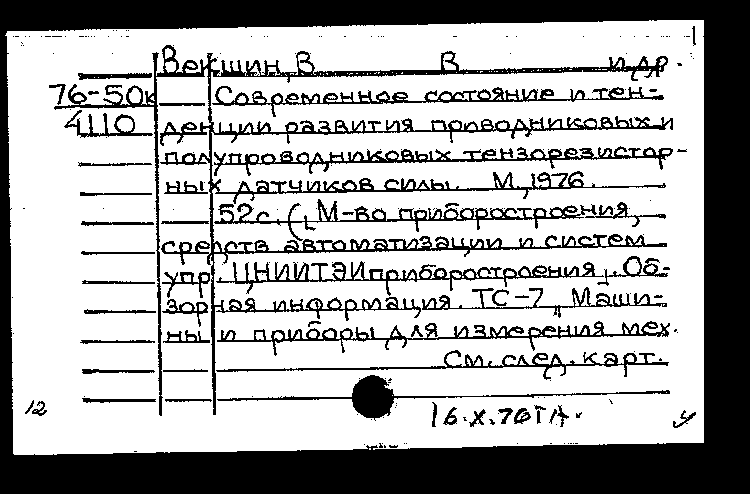 1
Векшин, В В и др.
76-50к Современное состояние и тен-
4110 денции развития проводниковых и
полупроводниковых тензорезистор-
ных датчиков силы. М., 1976.
52 с. (М-во приборостроения,
средств автоматизации и систем
упр. ЦНИИТЭИприборостроения). Об-
зорная информация. ТС-7, Маши-
ны и приборы для измерения мех.
См. след. карт.
12 16.X.76